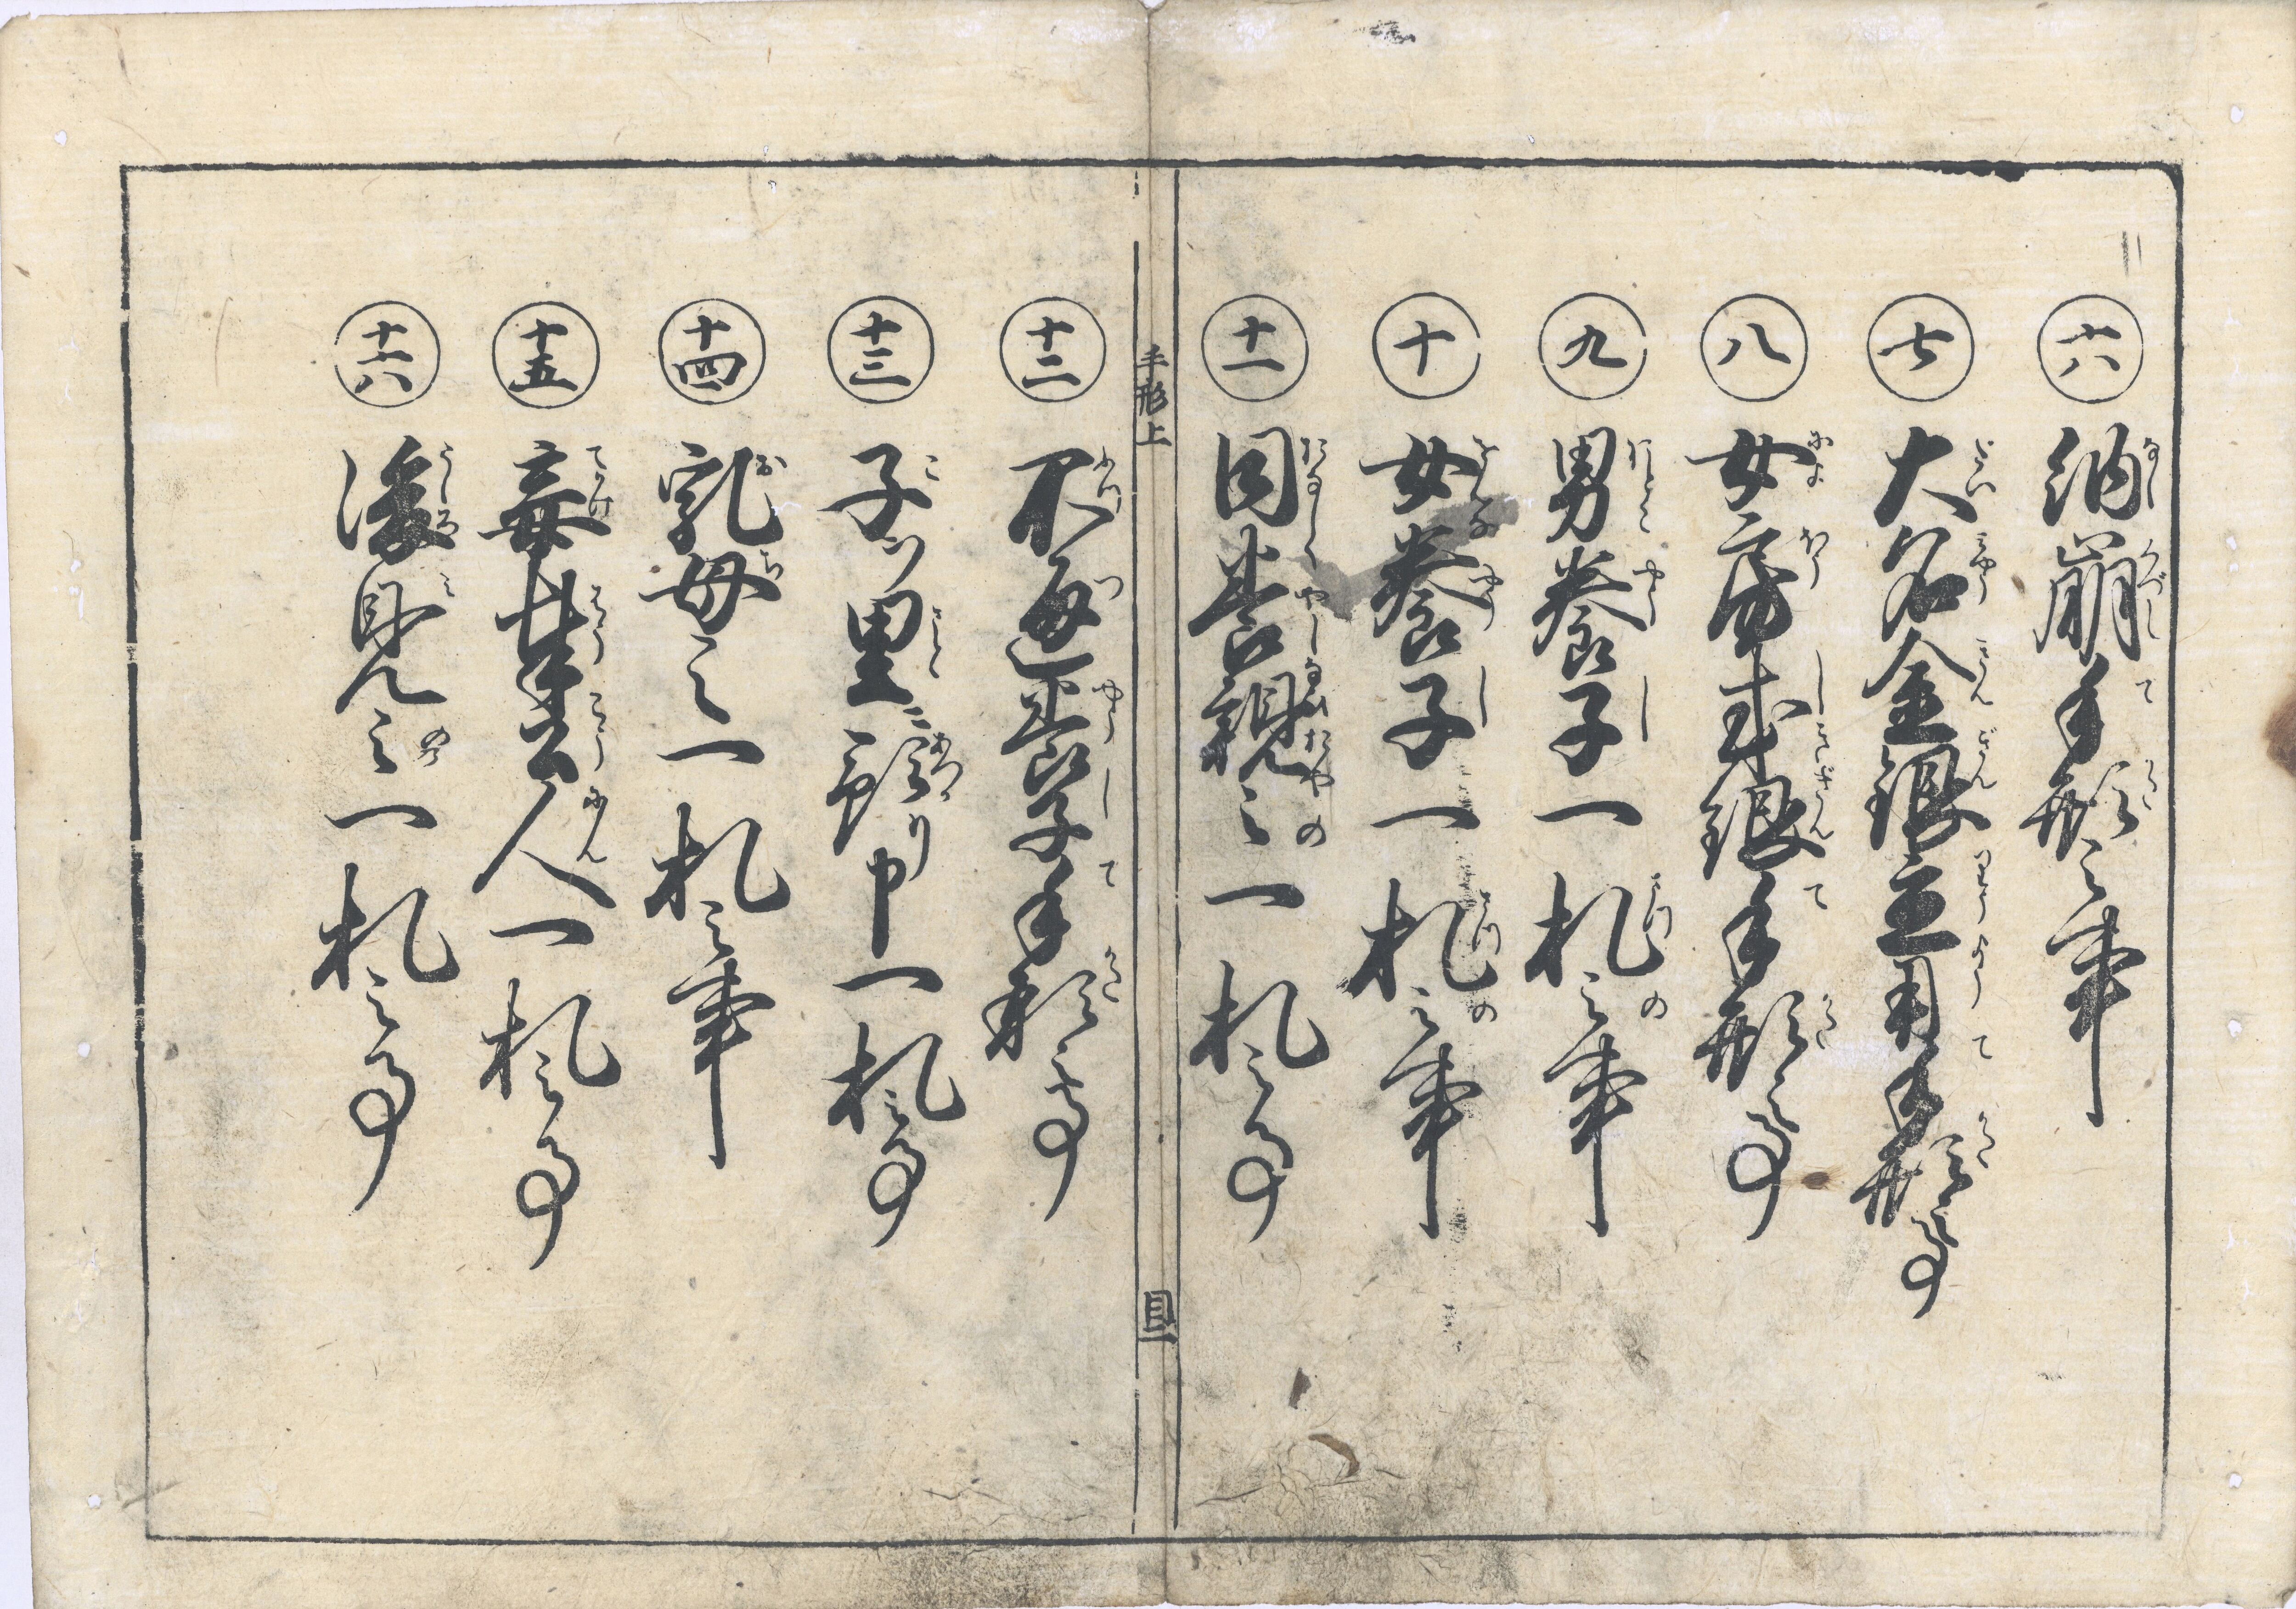 六 納崩手形之事
七 大名金銀立用手形之事
八 女房式銀手形之事
九 男養子一札之事
十 女養子一札之事
十一 同養親之一札之事
手形上 目一
十二 不通養子手形之事
十三 子ヲ里ニ預り申一札之事
十四 乳母之一札之事
十五 妾奉公人一札之事
十六 後見之一札之事